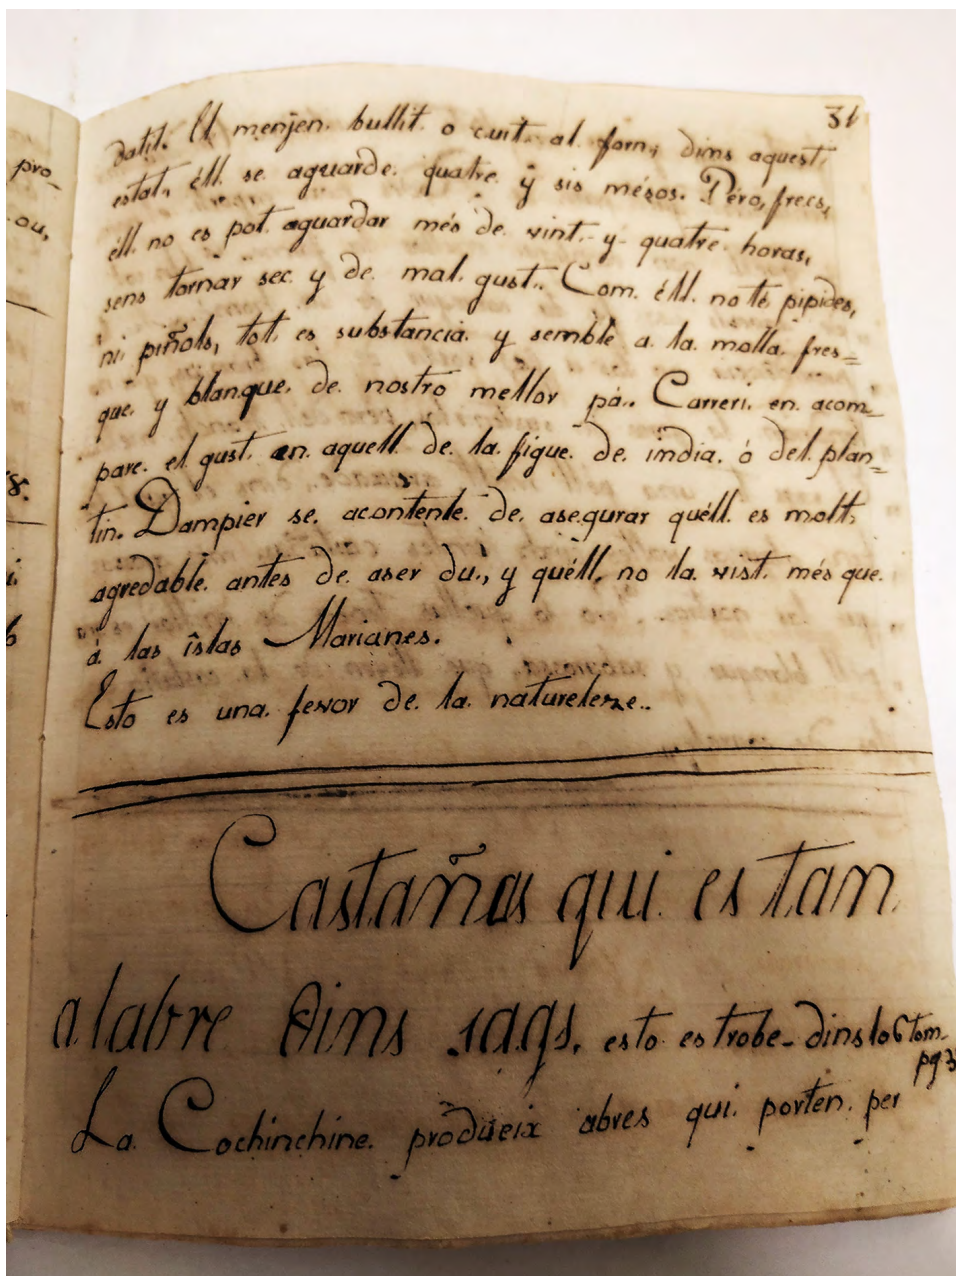 31
datil. El menjen. bullit. o cuit. al forn, dins aquest.
estat, éll. se aguarde. quatre y sis mésos. Péro, frecs,
éll no es pot aguardar més de vint-y-quatre horas,
sens tornar sec y de mal gust. Com éll no té pipides,
ni piñols, tot es substancia y semblè a la molla fres=
que y blanque de nostro mellor pa. Carreri en acom_
pare el gust an aquell de la figue de india ó del plan=
tin. Dampier se acontente de asegurar quéll es molt
agredable antes de aser du, y quéll no la vist més que
á las islas Marianes.
Esto es una fevor de la natureleze..
Castañas qui es tan
alabre dins sags, esto es trobe dins lo 6 tom.
pg 3
La Cochinchine produeix abres qui porten per
pro_
ou,
8.